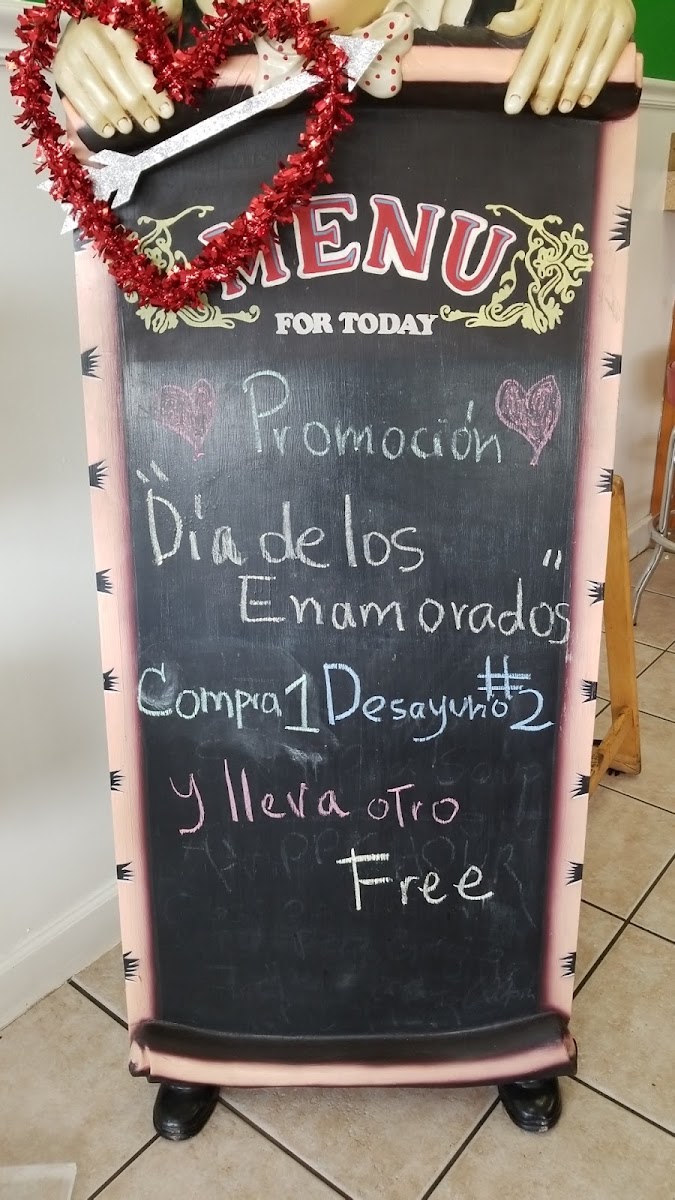 MENU
FOR TODAY
Promoción
"Día de los
Enamorados"
Compra 1 Desayuno #2
y lleva otro
Free